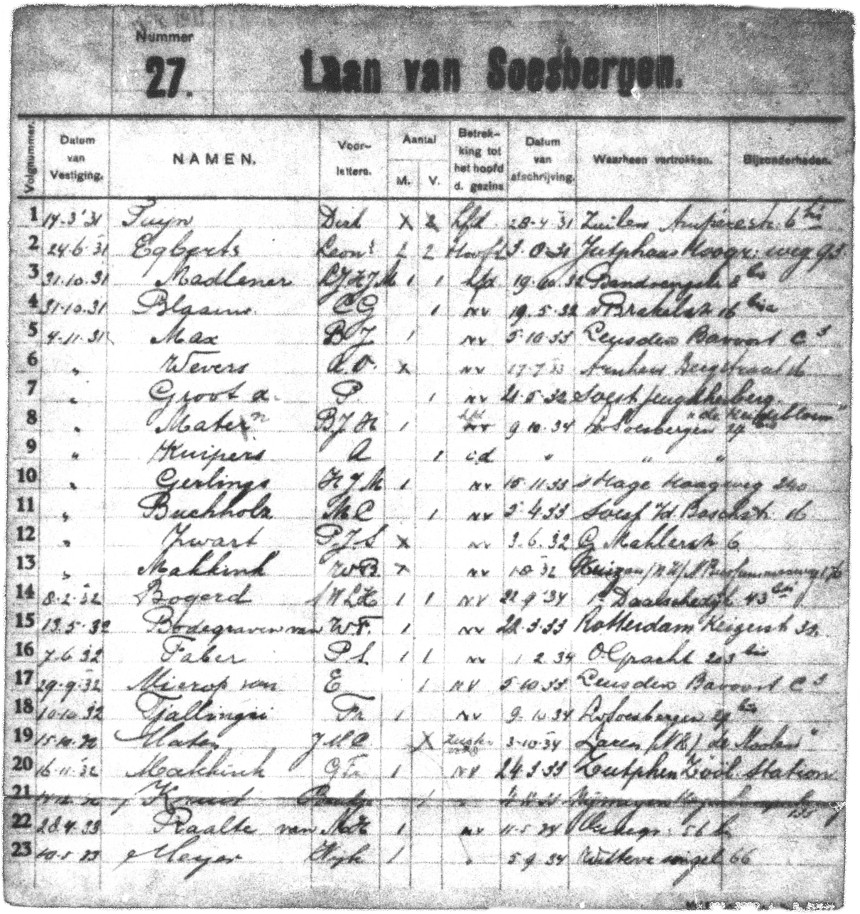 Nummer
27. Laan van Soesbergen.
Volgnummer. Datum van Vestiging. NAMEN. Voor-letters. Aantal M. V. Betrek-king tot het hoofd d. gezins Datum van afschrijving. Waarheen vertrokken. Bijzonderheden.
1 14-3-'31 Tuyn Dirk X 2 hfd 28-4-'31 Zuilen Amperestr. 6 bis
2 24-6-'31 Egberts Leon 2 Hoofd 3-8-31 Jutphaas Hoogr. weg 93
3 31-10-31 Madlener L J H J M 1 1 hfd 19-10-32
4 31-10-31 Blaauw C G 1 nv 19.5-32 v Brakelstr 16 bisa
5 4-11-31 Max B J 1 nv 5-10-33 Leusden Bavoort C 3
6 " Wevers A. O. X nv 17-7-33 Arnhem Bergstraat 16
7 " Groot de P. 1 nv 21-5-32 Soest
8 " Mater n B J H 1 hfd nv 9-10-34 Lv Soesbergen 29 bis
9 " Kuipers A 1 id " " " "
10 " Gerlings H J M 1 nv 15-11-33 s Hage Haagweg 240
11 " Buchholz M C 1 nv 5-4-33 Soest v/d Boschstr. 16
12 " Zwart P J S X nv 3-6-32 G Mahlerstr 6
13 " Makkink W B. X nv 1-8-32 Huizen (NH) N Bussummerweg 176
14 8-2-'32 Bogerd 1 1 nv 22-9-'34 Daalschedijk 43 bis
15 13.5-32 Bodegraven van W F. 1 nv 22-3-33 Rotterdam Keizerstr 32
16 7.6.32 Faber P S 1 1 nv 1-2-34 O Gracht 203 bis
17 29-9-'32 Mierop van E 1 nv 5-10-33 Leusden Bavoort C 3
18 10-10-32 Tjallingii Fr 1 nv 9-10-34 LvSoesbergen 29 bis
19 15-10-32 Mater J M C X zuster 3-10-34 Laren (NH) de
20 16-11-'32 Makkink G Fr 1 nv 24-3-33 Zutphen Zoöl. Station
21 Knud 1 Nijmegen
22 28.4-33 Raalte van M H 1 nv 11-5-34 56 b
23 10-5-33 Meyer Wijb 1 " 5-9-34 Wittevr singel 66